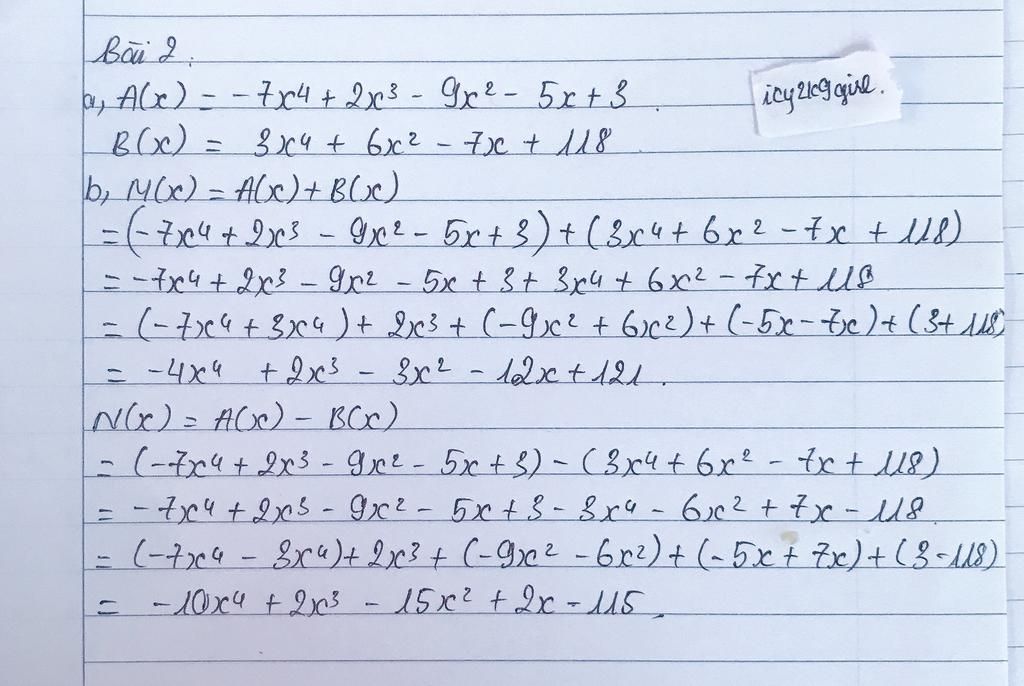 Bài 2:
a, A(x) = -7x⁴ + 2x³ - 9x² - 5x + 3.
icy2k9girl.
B(x) = 3x⁴ + 6x² - 7x + 118
b, M(x) = A(x) + B(x)
= (-7x⁴ + 2x³ - 9x² - 5x + 3) + (3x⁴ + 6x² - 7x + 118)
= -7x⁴ + 2x³ - 9x² - 5x + 3 + 3x⁴ + 6x² - 7x + 118
= (-7x⁴ + 3x⁴) + 2x³ + (-9x² + 6x²) + (-5x - 7x) + (3 + 118)
= -4x⁴ + 2x³ - 3x² - 12x + 121.
N(x) = A(x) - B(x)
= (-7x⁴ + 2x³ - 9x² - 5x + 3) - (3x⁴ + 6x² - 7x + 118)
= -7x⁴ + 2x³ - 9x² - 5x + 3 - 3x⁴ - 6x² + 7x - 118
= (-7x⁴ - 3x⁴) + 2x³ + (-9x² - 6x²) + (-5x + 7x) + (3 - 118)
= -10x⁴ + 2x³ - 15x² + 2x - 115.